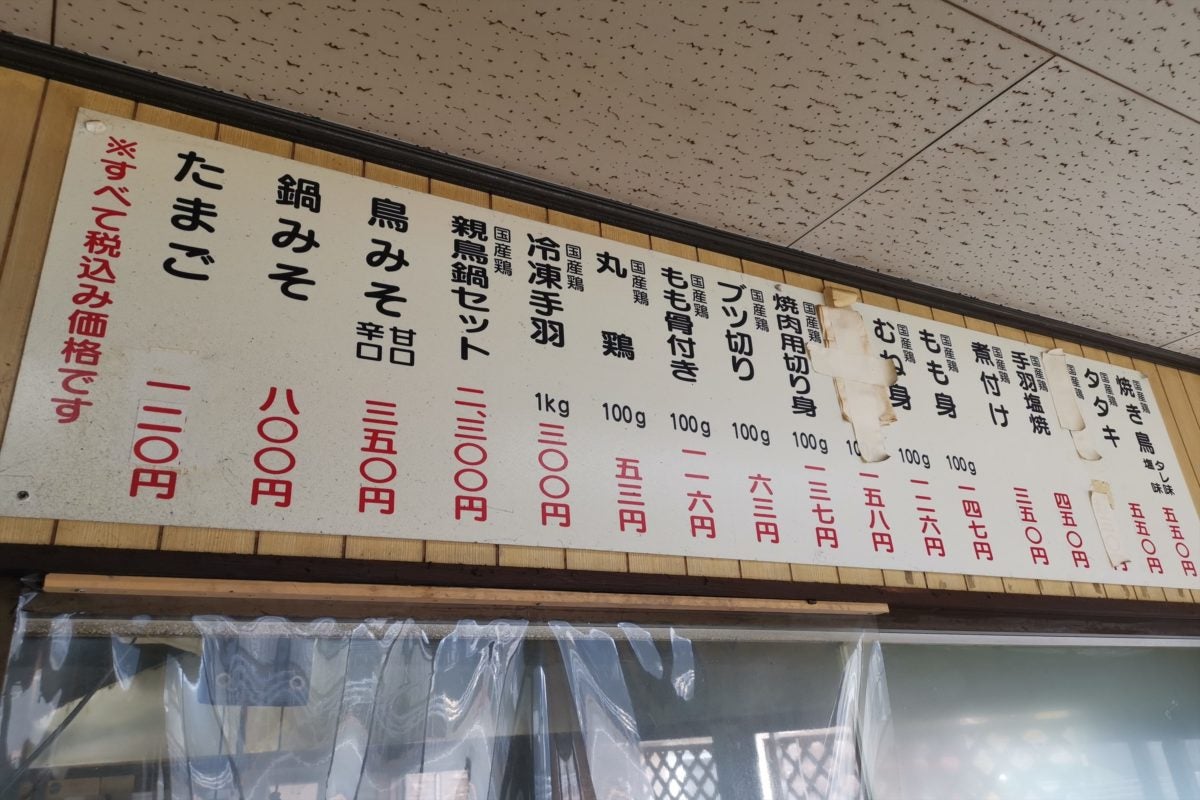 国産鶏
焼き鳥 タレ味 塩味 五五〇円
国産鶏
タタキ 五五〇円
国産鶏
円
国産鶏
手羽塩焼 四五〇円
国産鶏
煮付け 三五〇円
国産鶏
もも身 100g 一四七円
国産鶏
むね身 100g 一二六円
一五八円
国産鶏
焼肉用切り身 100g 一三七円
国産鶏
ブツ切り 100g 六三円
国産鶏
もも骨付き 100g 一一六円
国産鶏
丸鶏 100g 五三円
国産鶏
冷凍手羽 1kg 三〇〇円
国産鶏
親鳥鍋セット 二,三〇〇円
鳥みそ 甘口 辛口 三五〇円
鍋みそ 八〇〇円
たまご 一二〇円
※すべて税込み価格です